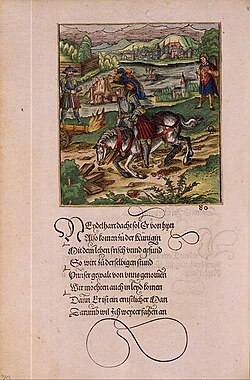 80
Neydelhart dacht sol Er von hyn
Also komen zu der Kunigin
Mit dem leben frisch vnnd gesund
So wirt zu derselbigen stund
Vnser gewalt von vnns genomen
Wir mochten auch in leyd komen
Dann Er ist ein ernstlicher Man
Darumb wil Ich weyter fahen an